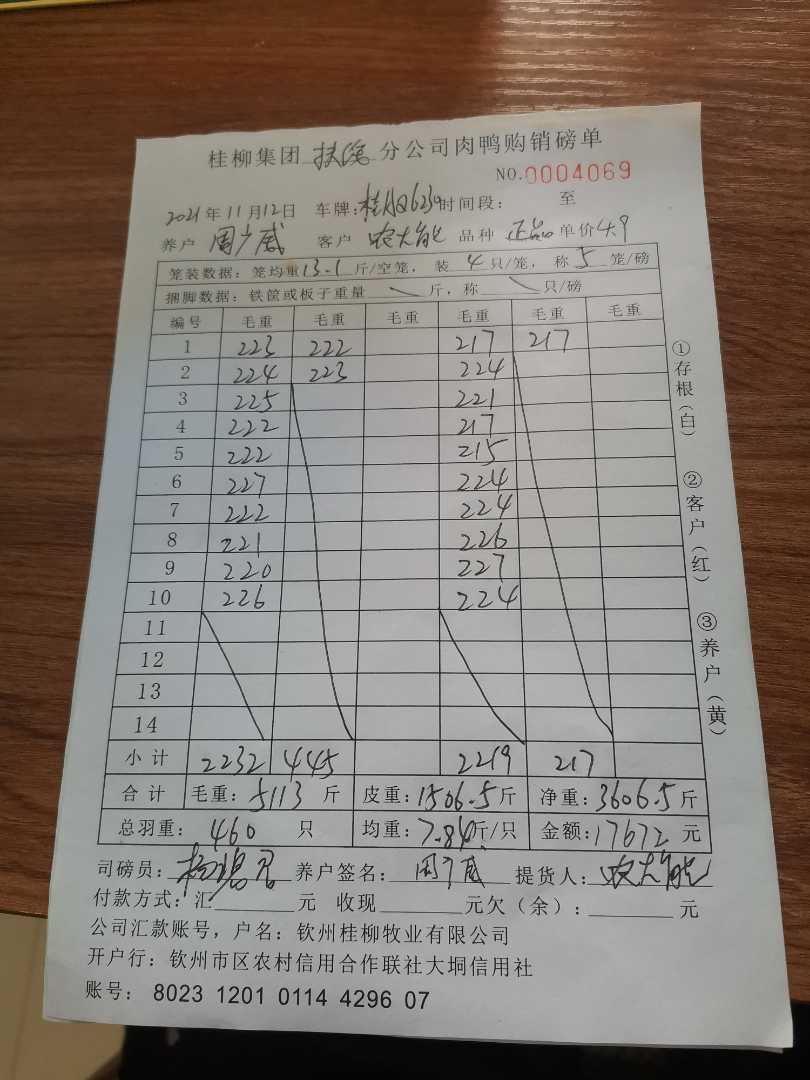 桂柳集团 扶绥 分公司肉鸭购销磅单
NO.0004069
2021年11月12日 车牌:桂 时间段: 至
养户 周广威 客户 农大能 品种 正品 单价4.9
笼装数据: 笼均重13.1斤/空笼, 装 4 只/笼, 称 5 笼/磅
捆脚数据: 铁筐或板子重量 斤, 称 只/磅
编号 毛重 毛重 毛重 毛重 毛重 毛重
1 223 222 217 217
2 224 223 224
3 225 221
4 222 217
5 222 215
6 227 224
7 222 224
8 221 226
9 220 227
10 226 224
11
12
13
14
小计 2232 445 2219 217
合计 毛重: 5113 斤 皮重: 1506.5斤 净重: 3606.5斤
总羽重: 460 只 均重: 7.84斤/只 金额: 17672 元
司磅员: 养户签名: 周广威 提货人: 农大能
付款方式: 汇 元 收现 元欠(余): 元
公司汇款账号, 户名: 钦州桂柳牧业有限公司
开户行: 钦州市区农村信用合作联社大垌信用社
账号: 8023 1201 0114 4296 07
①存根(白)
②客户(红)
③养户(黄)